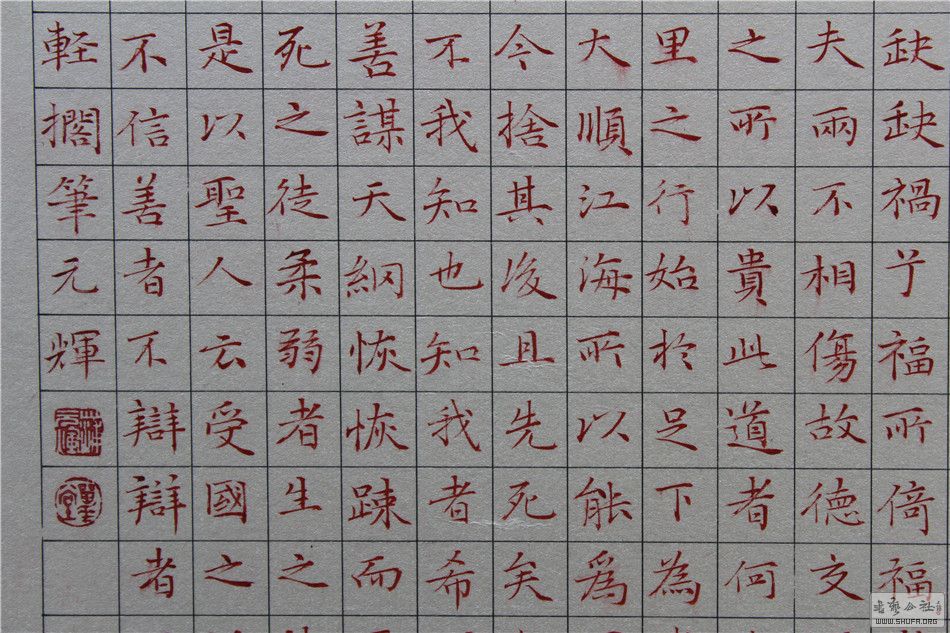 缺缺禍兮福所倚福
夫兩不相傷故德交
之所以貴此道者何
里之行始於足下為
大順江海所以能爲
今捨其後且先死矣
不我知也知我者希
善謀天網恢恢踈而
死之徒柔弱者生之
是以聖人云受國之
不信善者不辯辯者
軽擱筆元輝
WWW.SHUFA.ORG